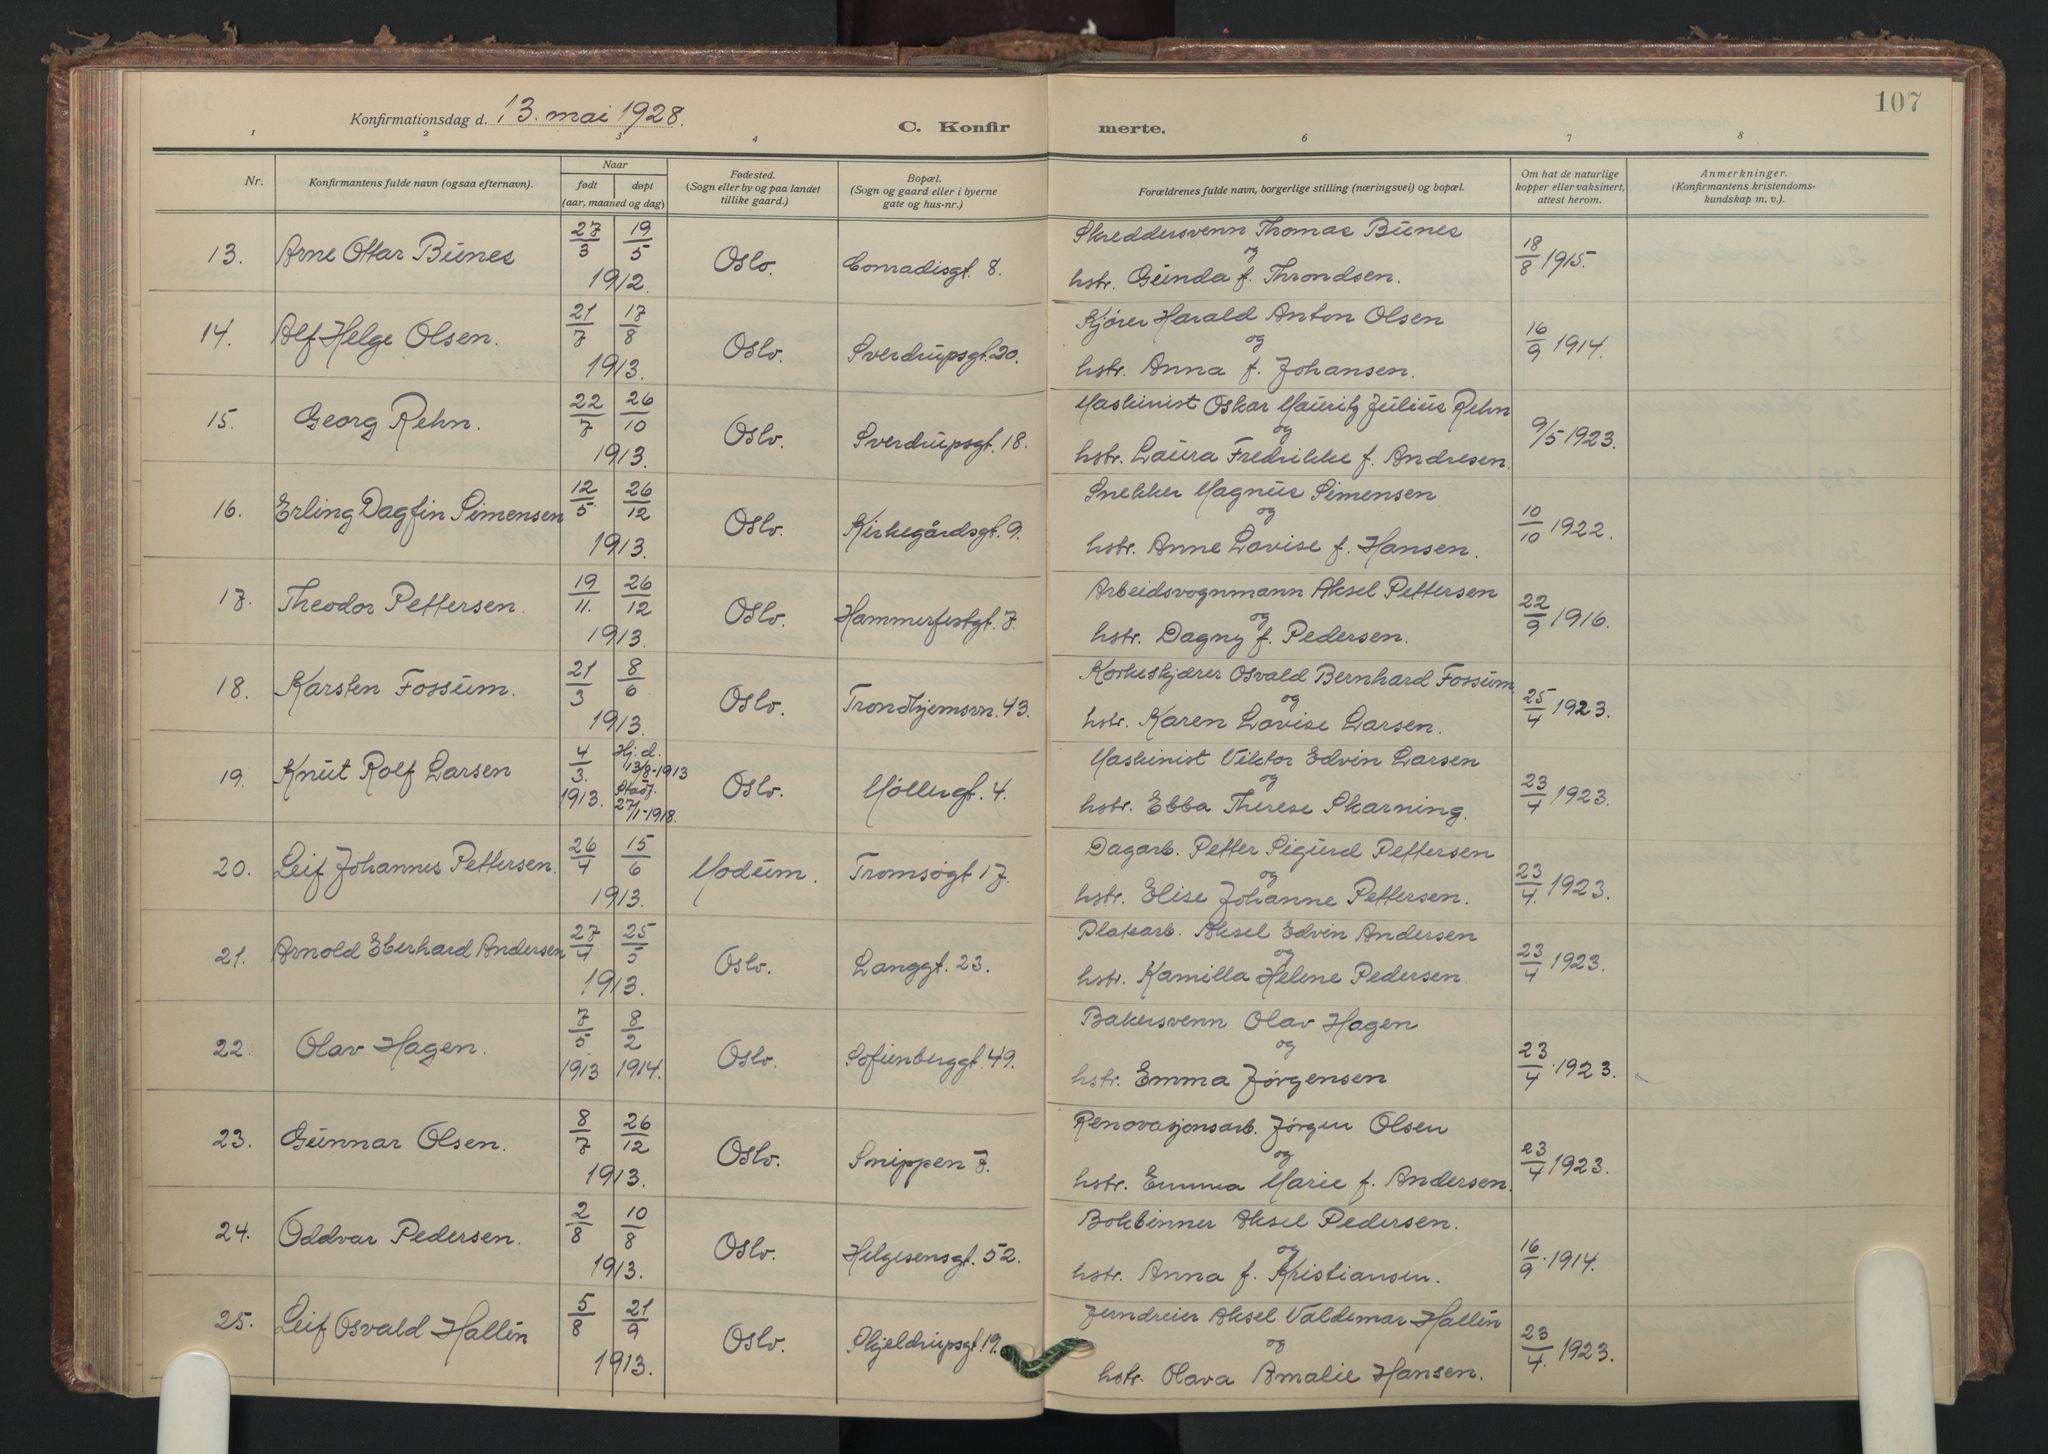 107
Konfirmationsdag d. 13. mai 1928.
C. Konfirmerte.
1 2 3 4 6 7 8
Nr. | Konfirmantens fulde navn (ogsaa efternavn). | Naar født døpt (aar, maaned og dag) | Fødested. (Sogn eller by og paa landet tillike gaard.) | Bopæl. (Sogn og gaard eller i byerne gate og hus-nr.) | Forældrenes fulde navn, borgerlige stilling (næringsvei) og bopæl. | Om hat de naturlige kopper eller vaksinert, attest herom. | Anmerkninger. (Konfirmantens kristendomskundskap m. v.).
13. Arne Ottar Bünes 27/3 19/5 1912. Oslo. Conradisgt. 8. Skreddersvenn Thomas Bünes og hstr. Günda f. Throndsen. 18/8 1915.
14. Alf Helge Olsen. 21/7 17/8 1913. Oslo. Sverdrupsgt. 20. Kjører Harald Anton Olsen og hstr. Anna f. Johansen. 16/9 1914.
15. Georg Rehn. 22/7 26/10 1913. Oslo. Sverdrupsgt. 18. Maskinist Oskar Mauritz Julius Rehn og hstr. Laura Fredrikke f. Andresen. 9/5 1923.
16. Erling Dagfin Simensen 12/5 26/12 1913. Oslo. Kirkegårdsgt. 9. Snekker Magnus Simensen og hstr. Anne Lovise f. Hansen. 10/10 1922.
17. Theodor Pettersen. 19/11. 26/12 1913. Oslo. Hammerfestgt. 7. Arbeidsvognmann Aksel Pettersen og hstr. Dagny f. Pedersen. 22/9 1916.
18. Karsten Fossum. 21/3 8/6 1913. Oslo. Trondhjemsvn. 43. Korkeskjærer Osvald Bernhard Fossum og hstr. Karen Lovise Larsen. 25/4 1923.
19. Knut Rolf Larsen 4/3. 1913. Hj. d. 13/8-1913 Stadf. 27/1-1918. Oslo. Møllergt. 4. Maskinist Viktor Edvin Larsen og hstr. Ebba Therese Skarning. 23/4 1923.
20. Leif Johannes Pettersen. 26/4 15/6 1913. Modum. Tromsøgt 17. Dagarb. Petter Sigurd Pettersen og hstr. Elise Johanne Pettersen. 23/4. 1923.
21. Arnold Eberhard Andersen 27/4 25/5 1913. Oslo. Langgt. 23. Platearb. Aksel Edvin Andersen og hstr. Kamilla Helene Pedersen. 23/4 1923.
22. Olav Hagen. 7/5 1913 8/2 1914. Oslo. Sofienberggt. 49. Bakersvenn Olav Hagen og hstr. Emma Jørgensen 23/4. 1923.
23. Gunnar Olsen. 8/7 26/12 1913. Oslo. Snippen 7. Renovasjonsarb. Jørgen Olsen og hstr. Emma Marie f. Andersen. 23/4 1923.
24. Oddvar Pedersen. 2/8 10/8 1913. Oslo. Helgesensgt. 52. Bokbinner Aksel Pedersen. og hstr. Anna f. Kristiansen. 16/9. 1914.
25. Leif Osvald Hallin 5/8 21/9 1913. Oslo. Skjeldrupsgt. 19. Jerndreier Aksel Valdemar Hallin og hstr. Olava Amalie Hansen. 23/4. 1923.